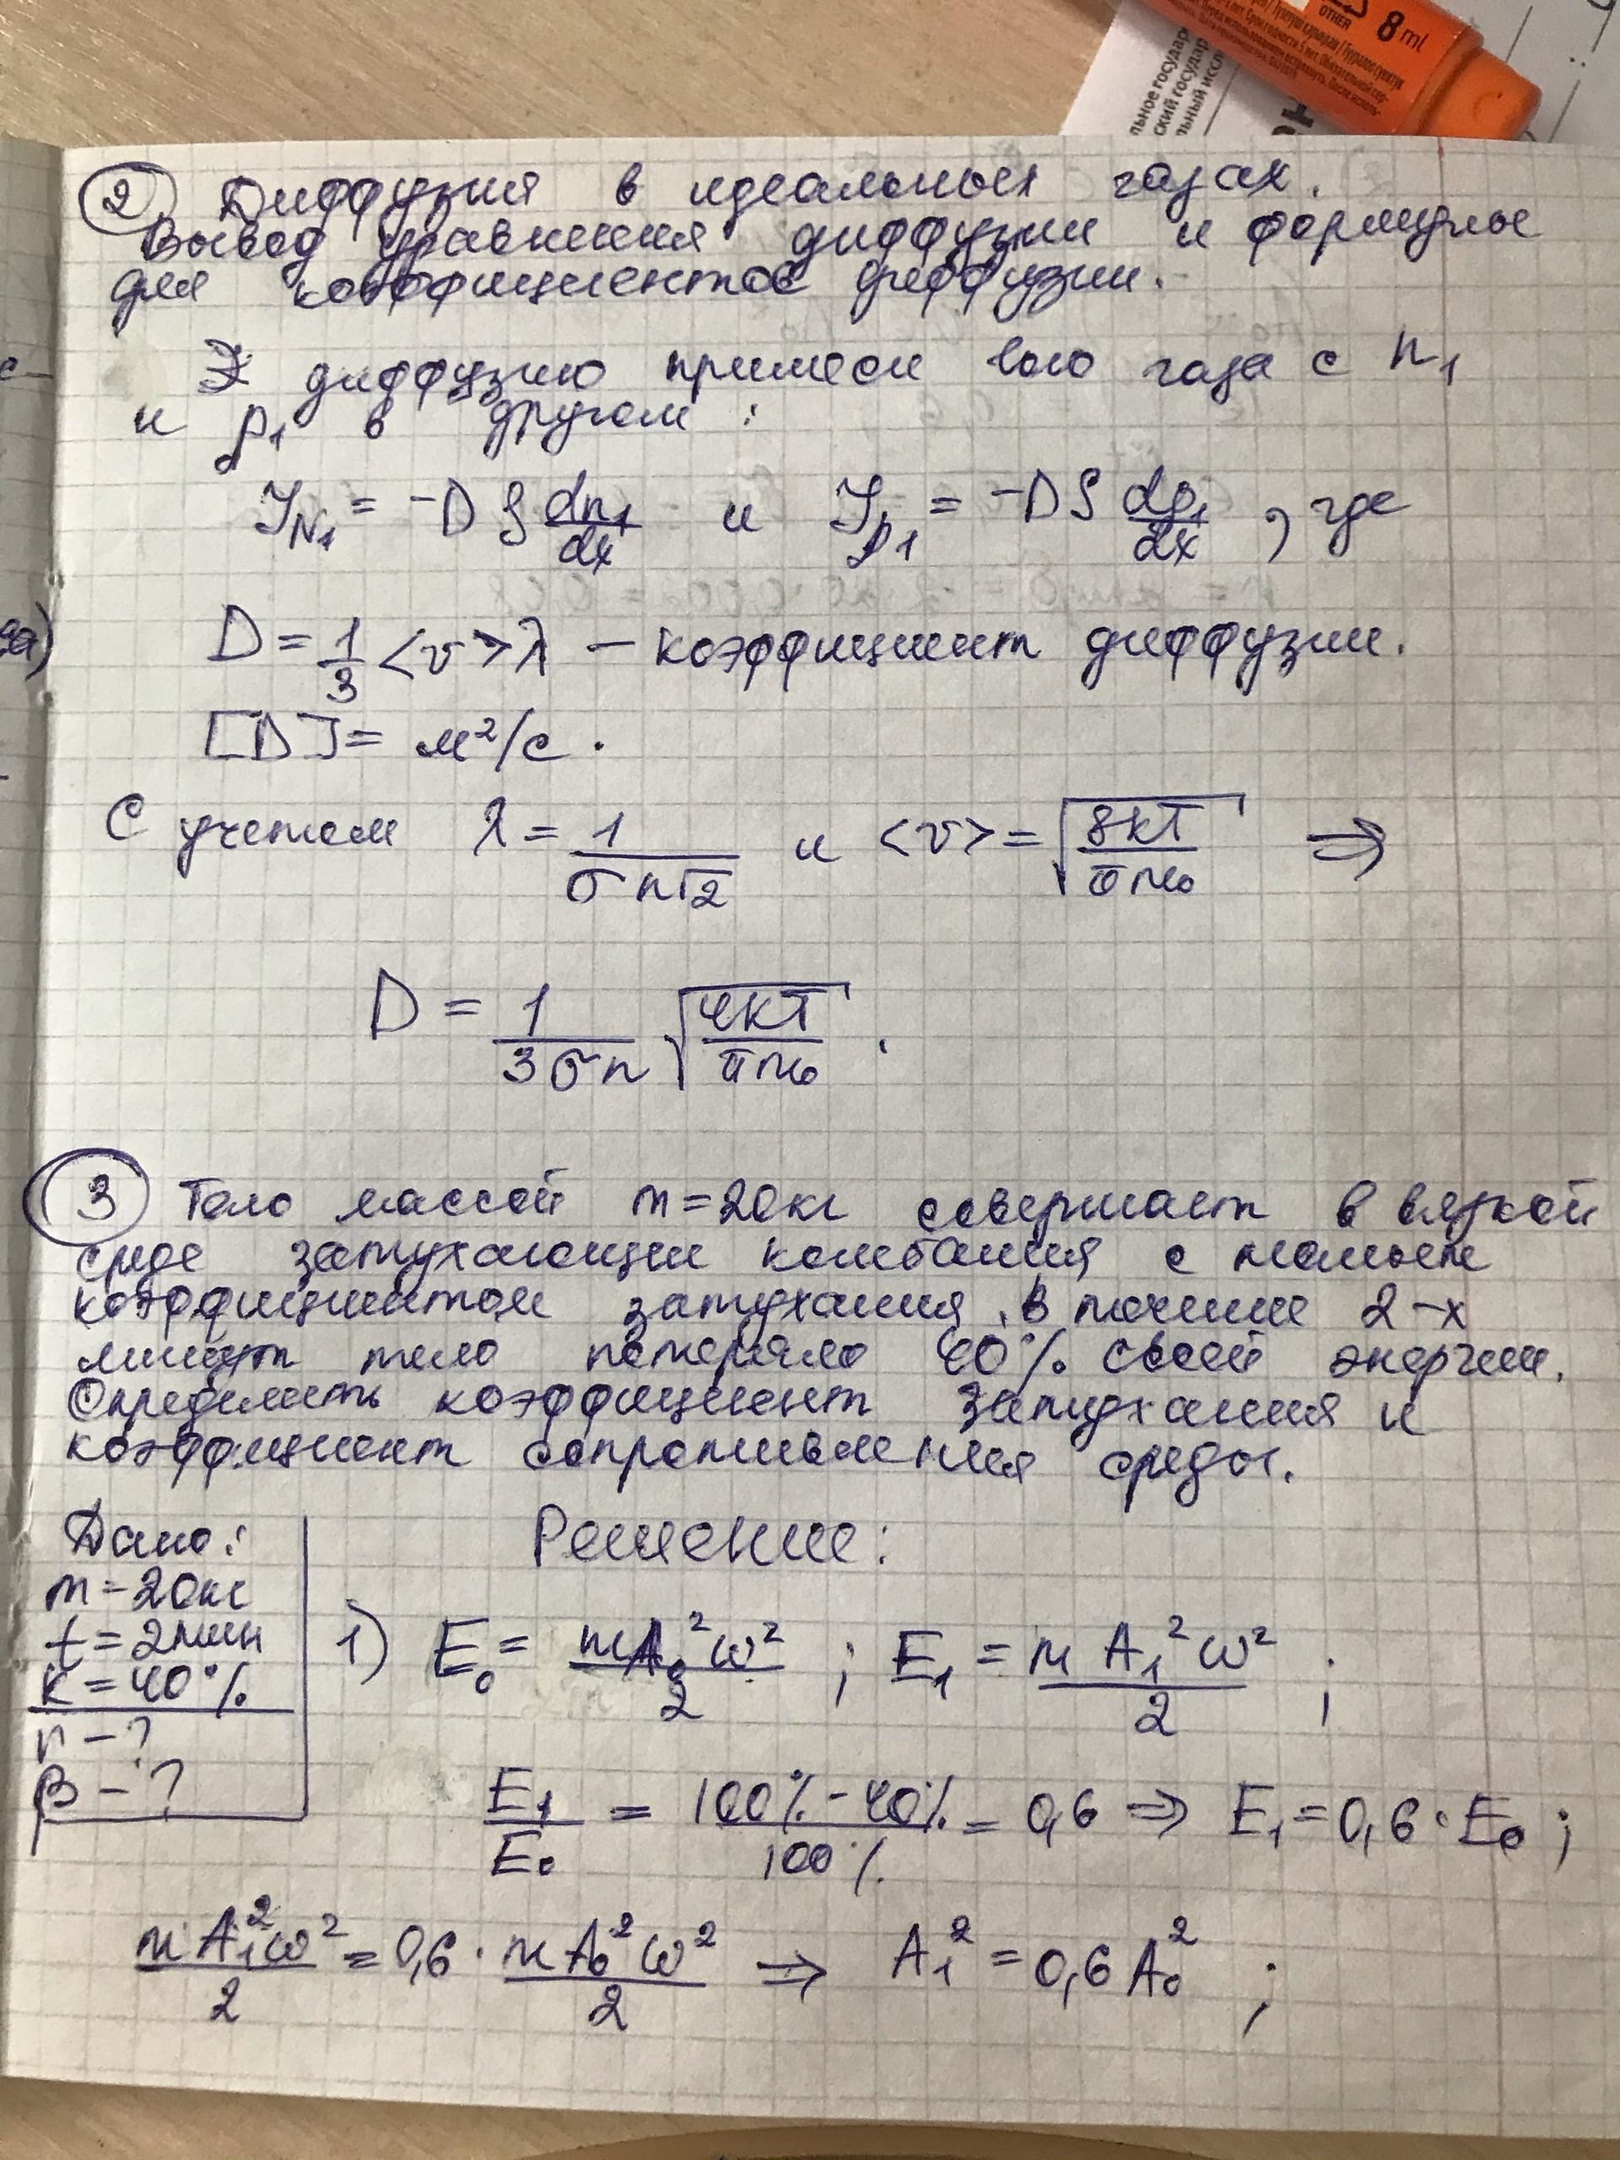 OTHER
8 ml
льное государ
ский государ
льный иссл
② Диффузия в идеальных газах.
Вывод уравнения диффузии и формулы
для коэффициентов диффузии.
диффузию примеси газа с n₁
и ρ₁ в другом:
J_N₁ = -D S dn₁/dx и J_ρ₁ = -D S dρ₁/dx, где
D = 1/3 <v> λ – коэффициент диффузии.
[D] = м²/с.
С учетом λ = 1/(σn√2) и <v> = √(8kT/πm₀) ⇒
D = 1/(3σn) √(4kT/πm₀).
③ Тело массой m = 20кг совершает в вязкой
среде затухающии колебания с малым
коэффициентом затухания. В течение 2-х
минут тело потеряло 40% своей энергии.
Определить коэффициент затухания и
коэффициент сопротивления среды.
Дано:
m = 20кг
t = 2мин
k = 40%
r - ?
β - ?
Решение:
1) E₀ = mA₀²ω²/2 ; E₁ = mA₁²ω²/2 ;
E₁/E₀ = (100% - 40%)/100% = 0,6 ⇒ E₁ = 0,6 · E₀ ;
mA₁²ω²/2 = 0,6 · mA₀²ω²/2 ⇒ A₁² = 0,6 A₀² ;